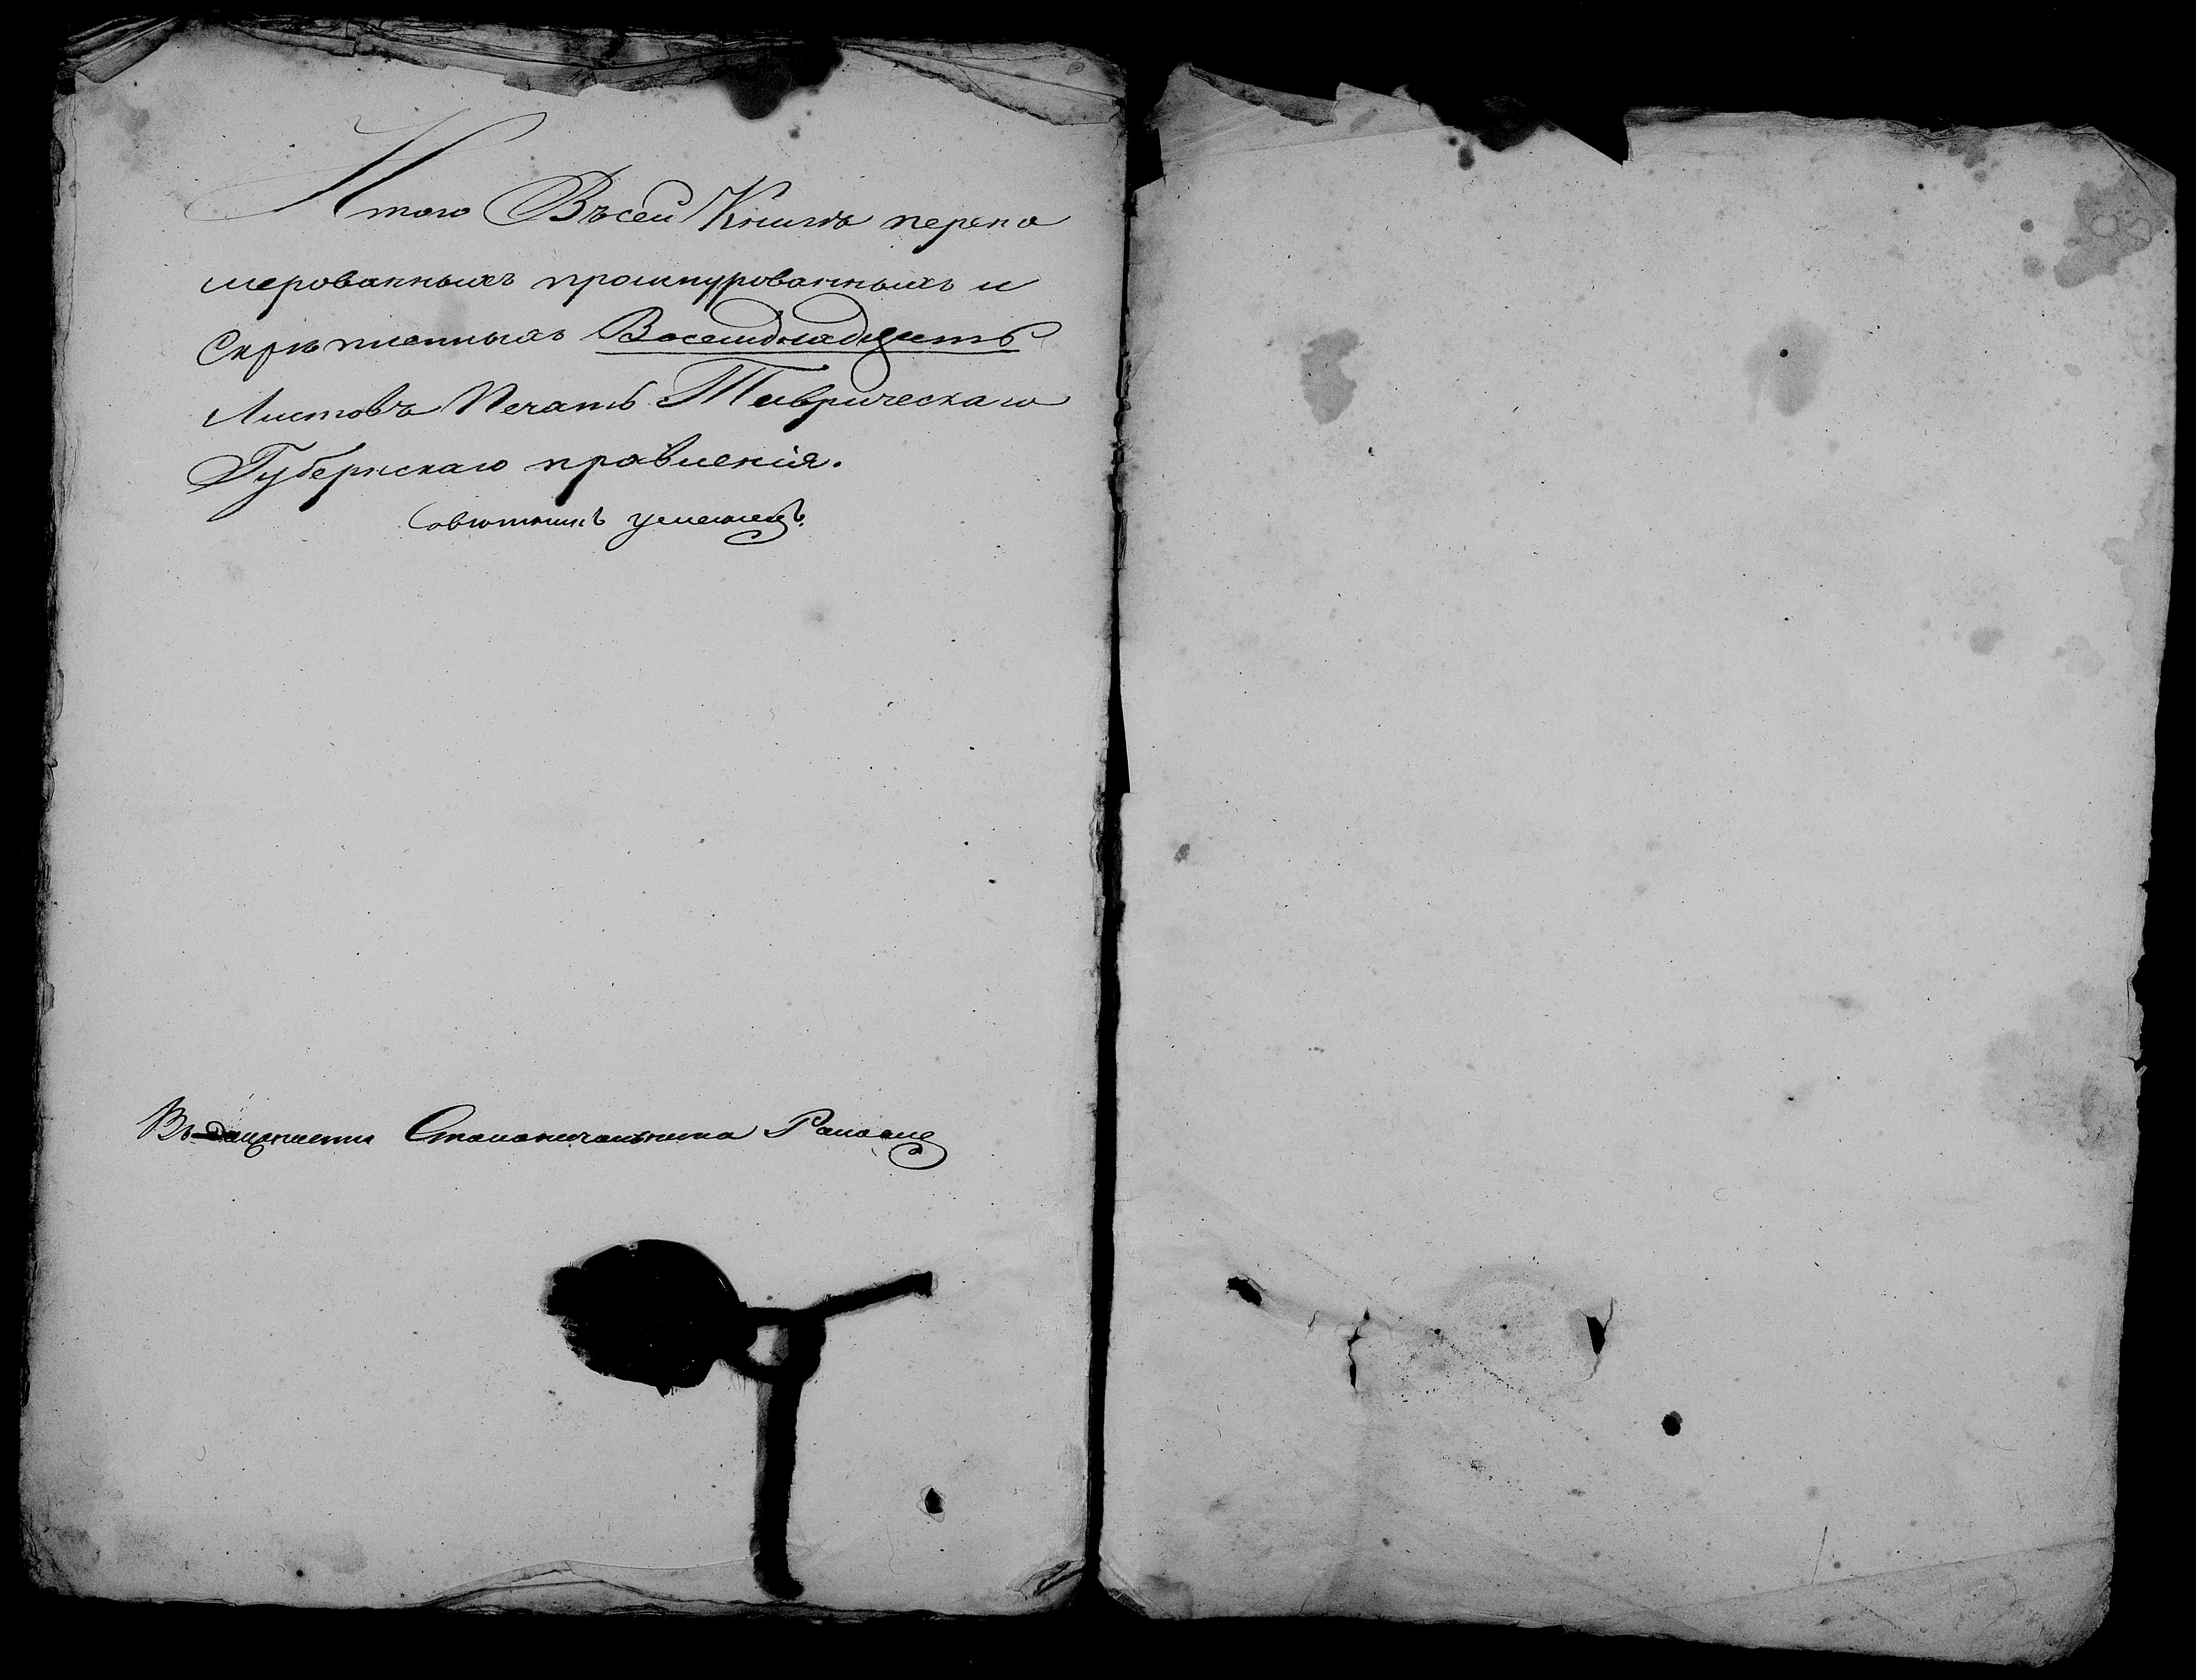 Итого Въсей Книгѣ перено
мерованныхъ прошнурованныхъ и
Скрѣпленныхъ Восемьнадцать
Листовъ Печать Таврическаго
Губернскаго правления.
Совѣтникъ
Въ должности Столоначальника